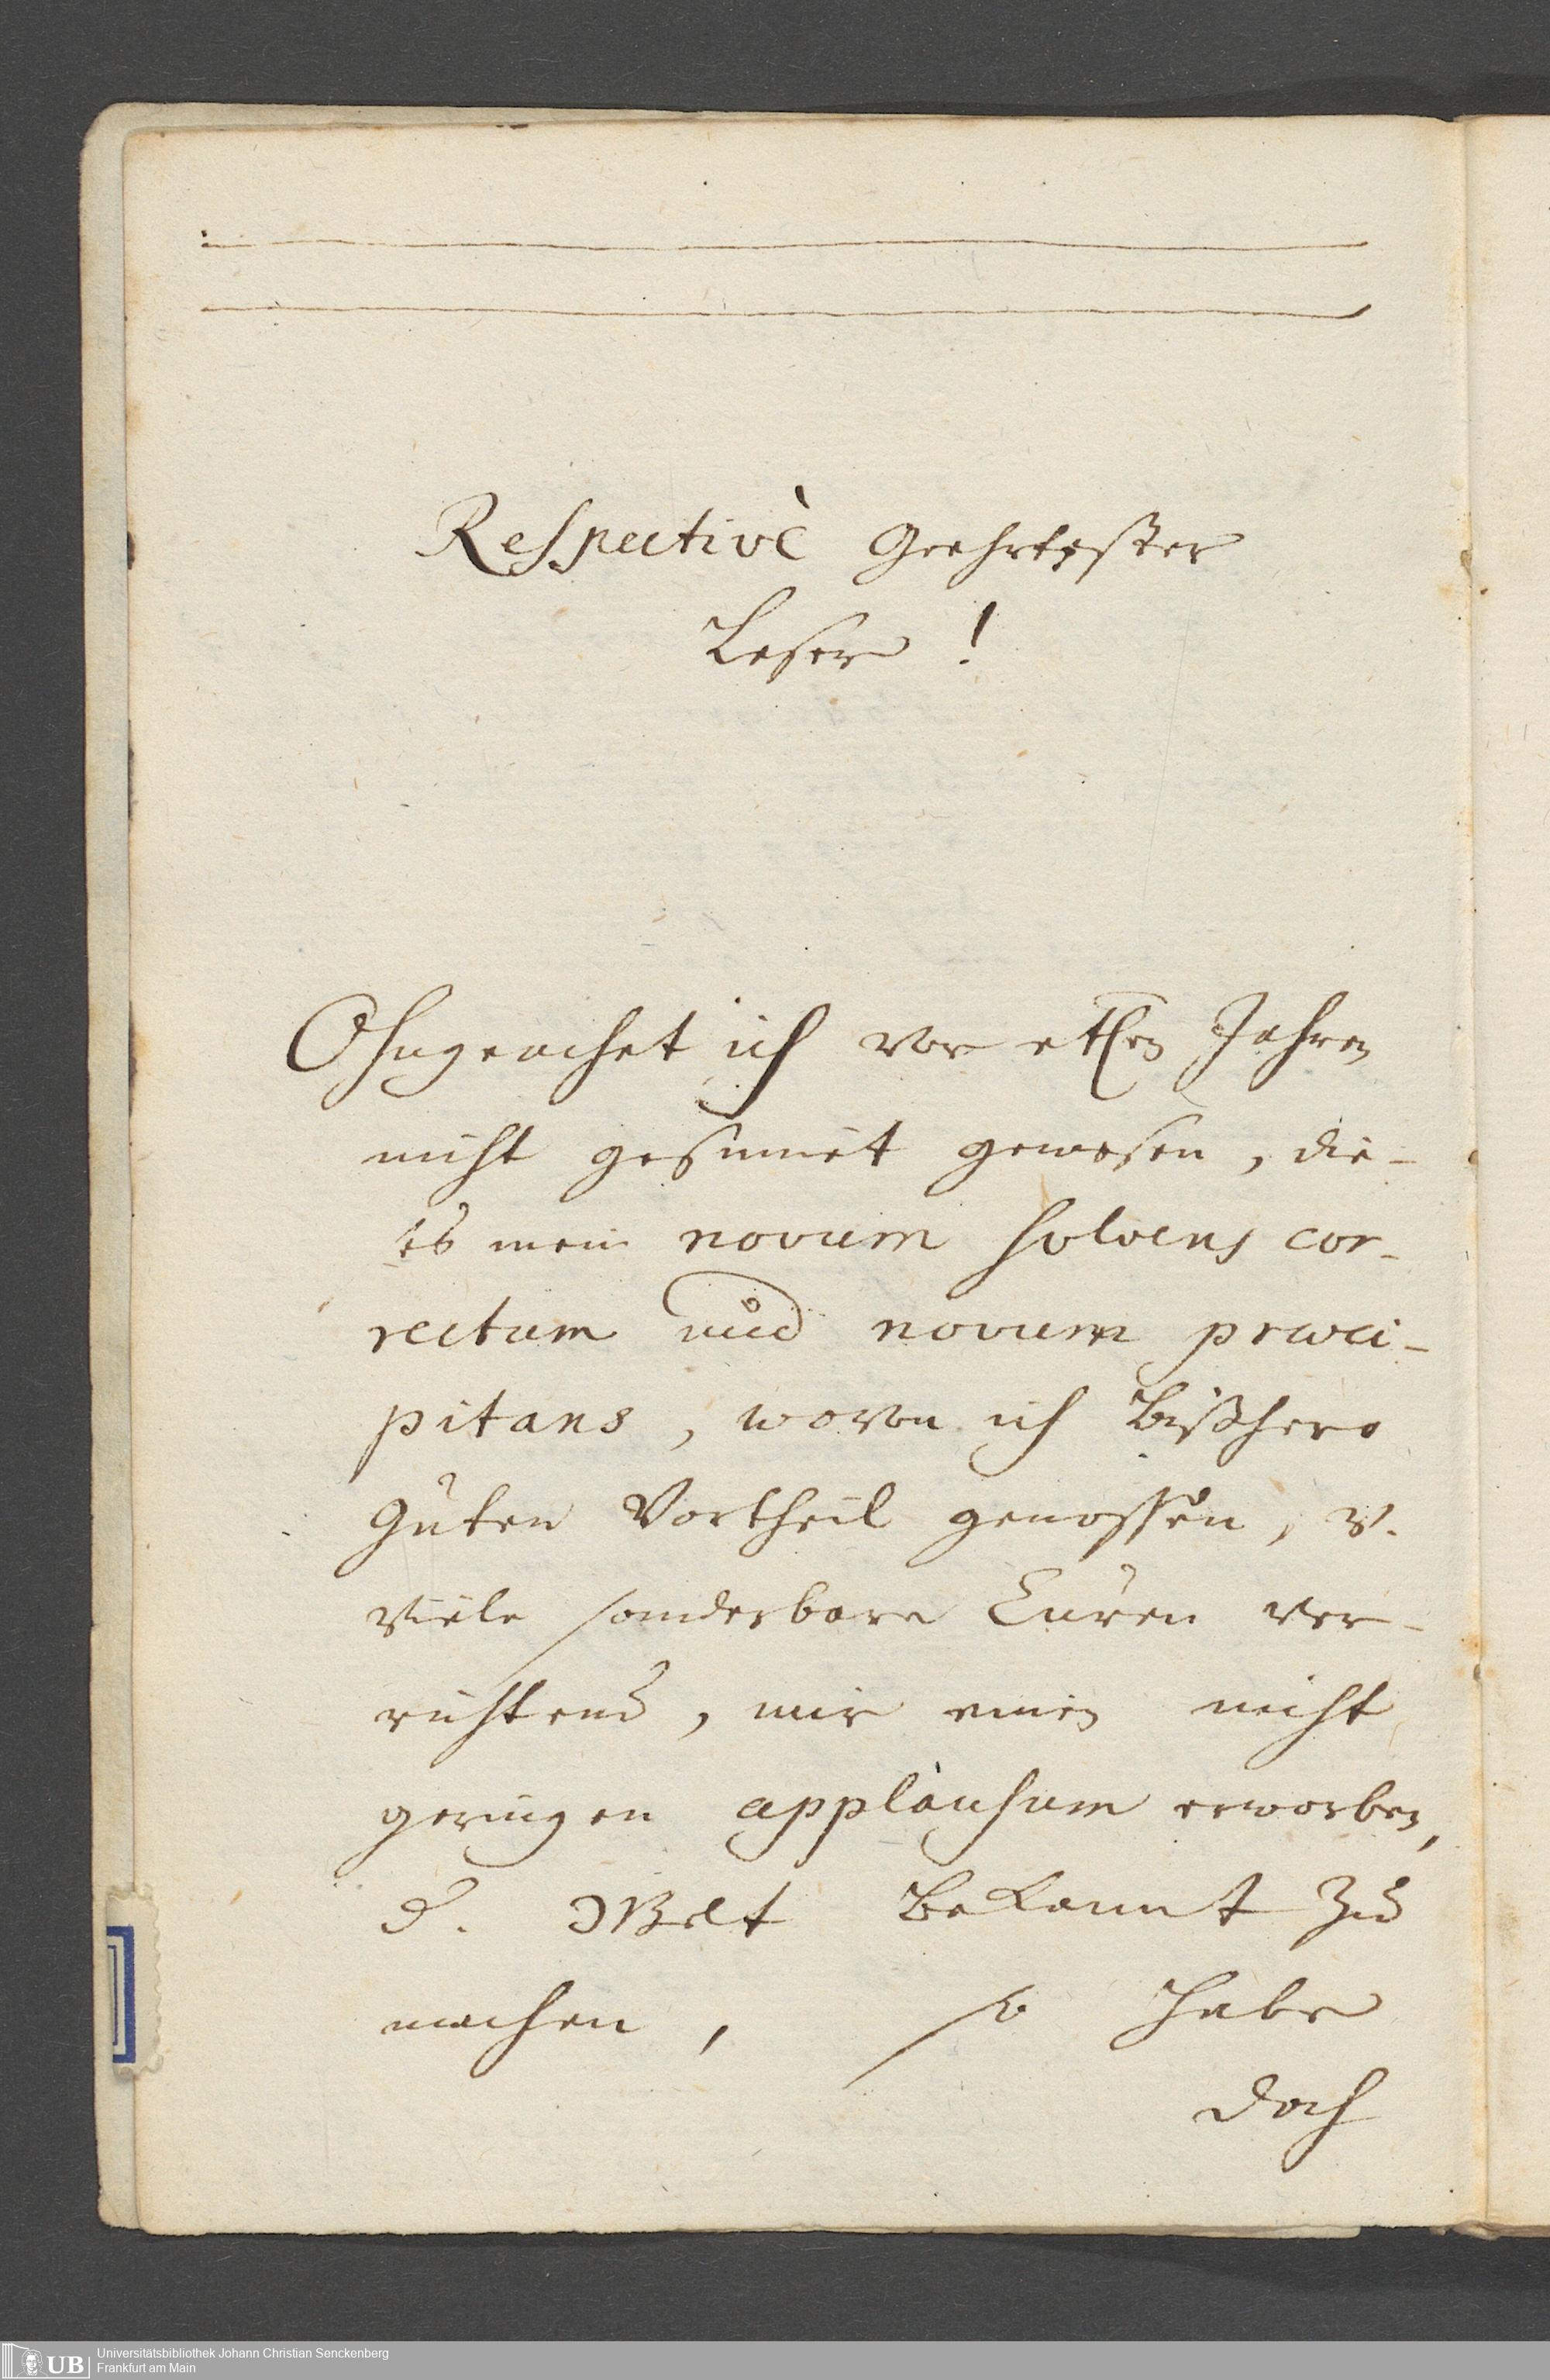 Respectivè Geehrtester
Leser !
Ohngeachet ich vor etlen Jahren
nicht gesinnet gewesen, die-
es mein novum solvens cor-
rectum und novum præci-
pitans, wovon ich bißhero
guten Vortheil genossen, v.
viele sonderbare Curen ver-
richtend, mir einen nicht
geringen applausum erworben,
d. Welt bekannt zu
machen, so habe
doch
UB Universitätsbibliothek Johann Christian Senckenberg
Frankfurt am Main